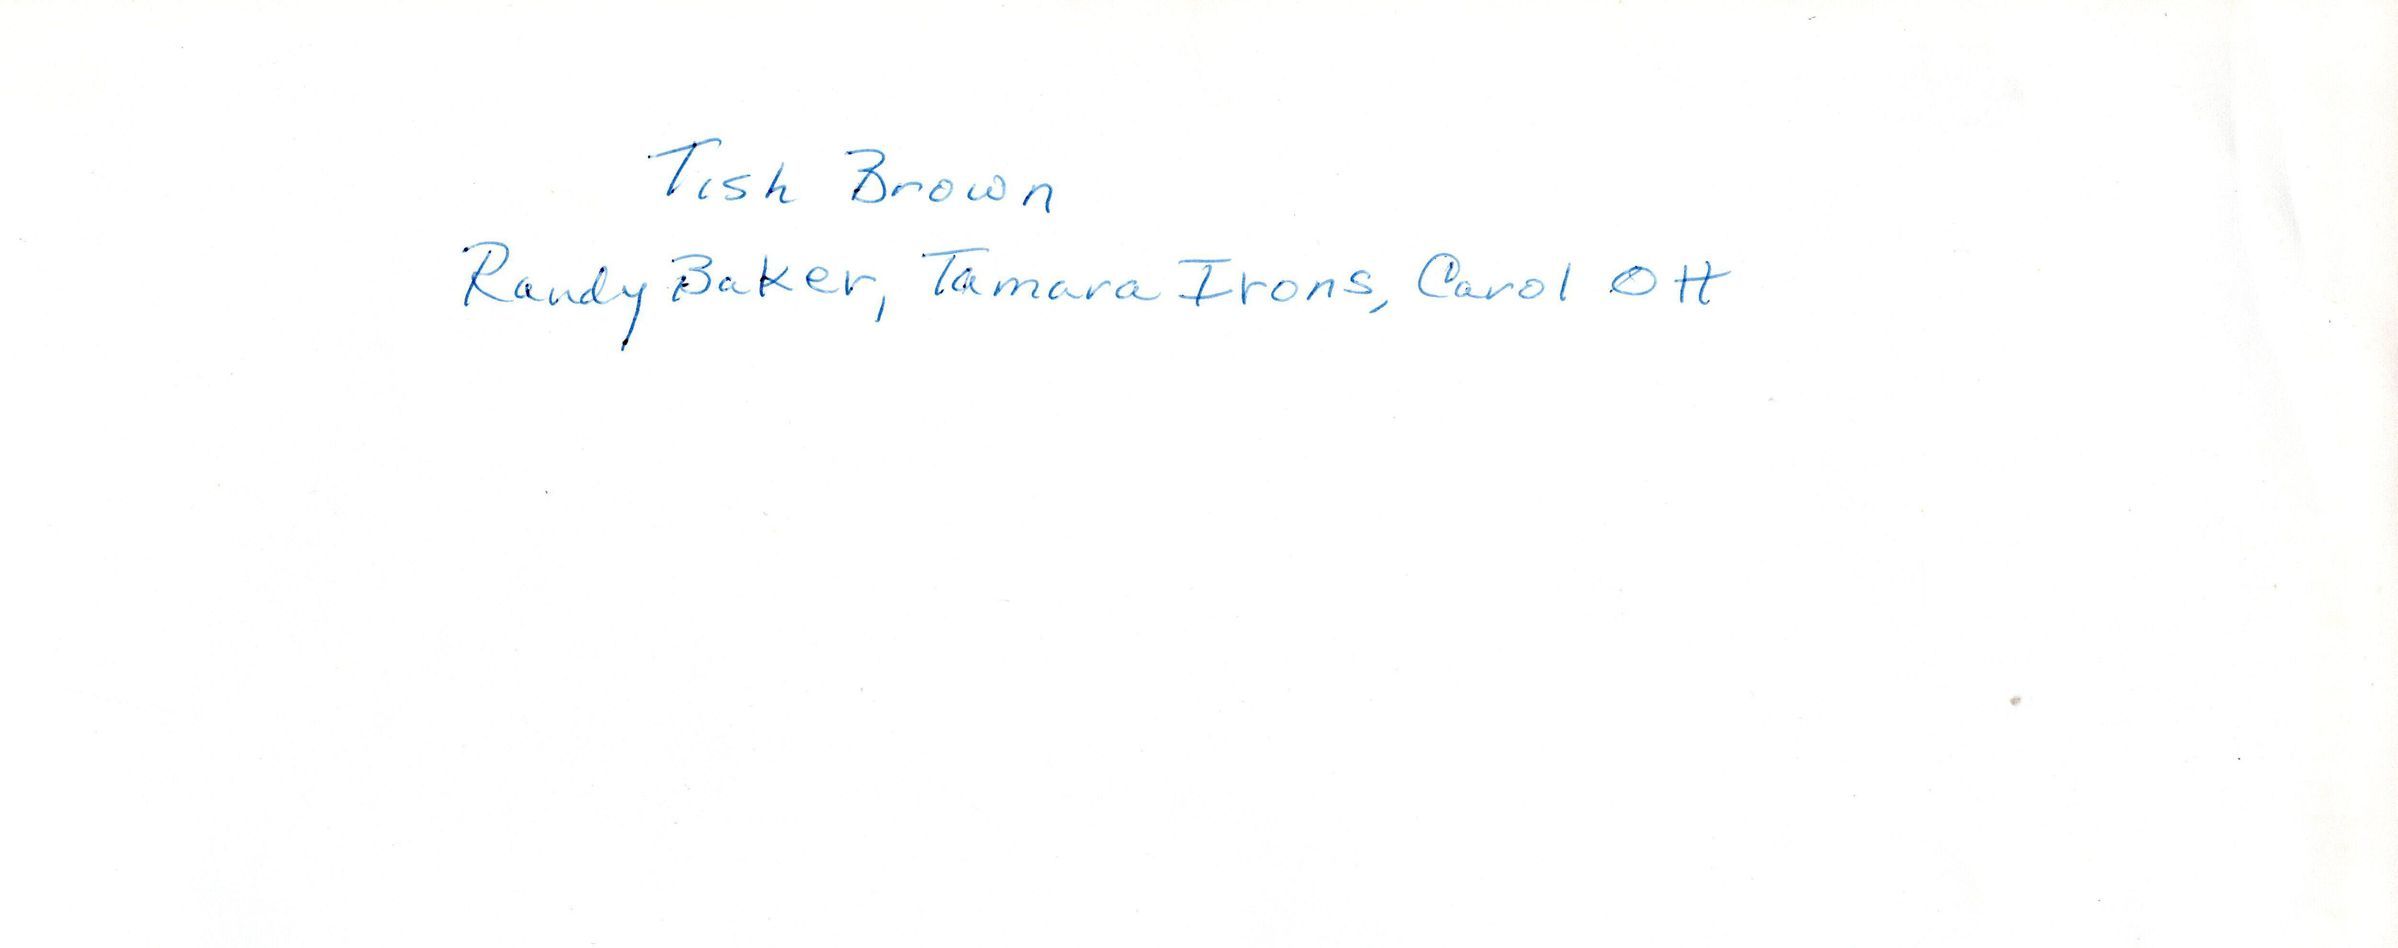 Tish Brown
Randy Baker, Tamara Irons, Carol Ott